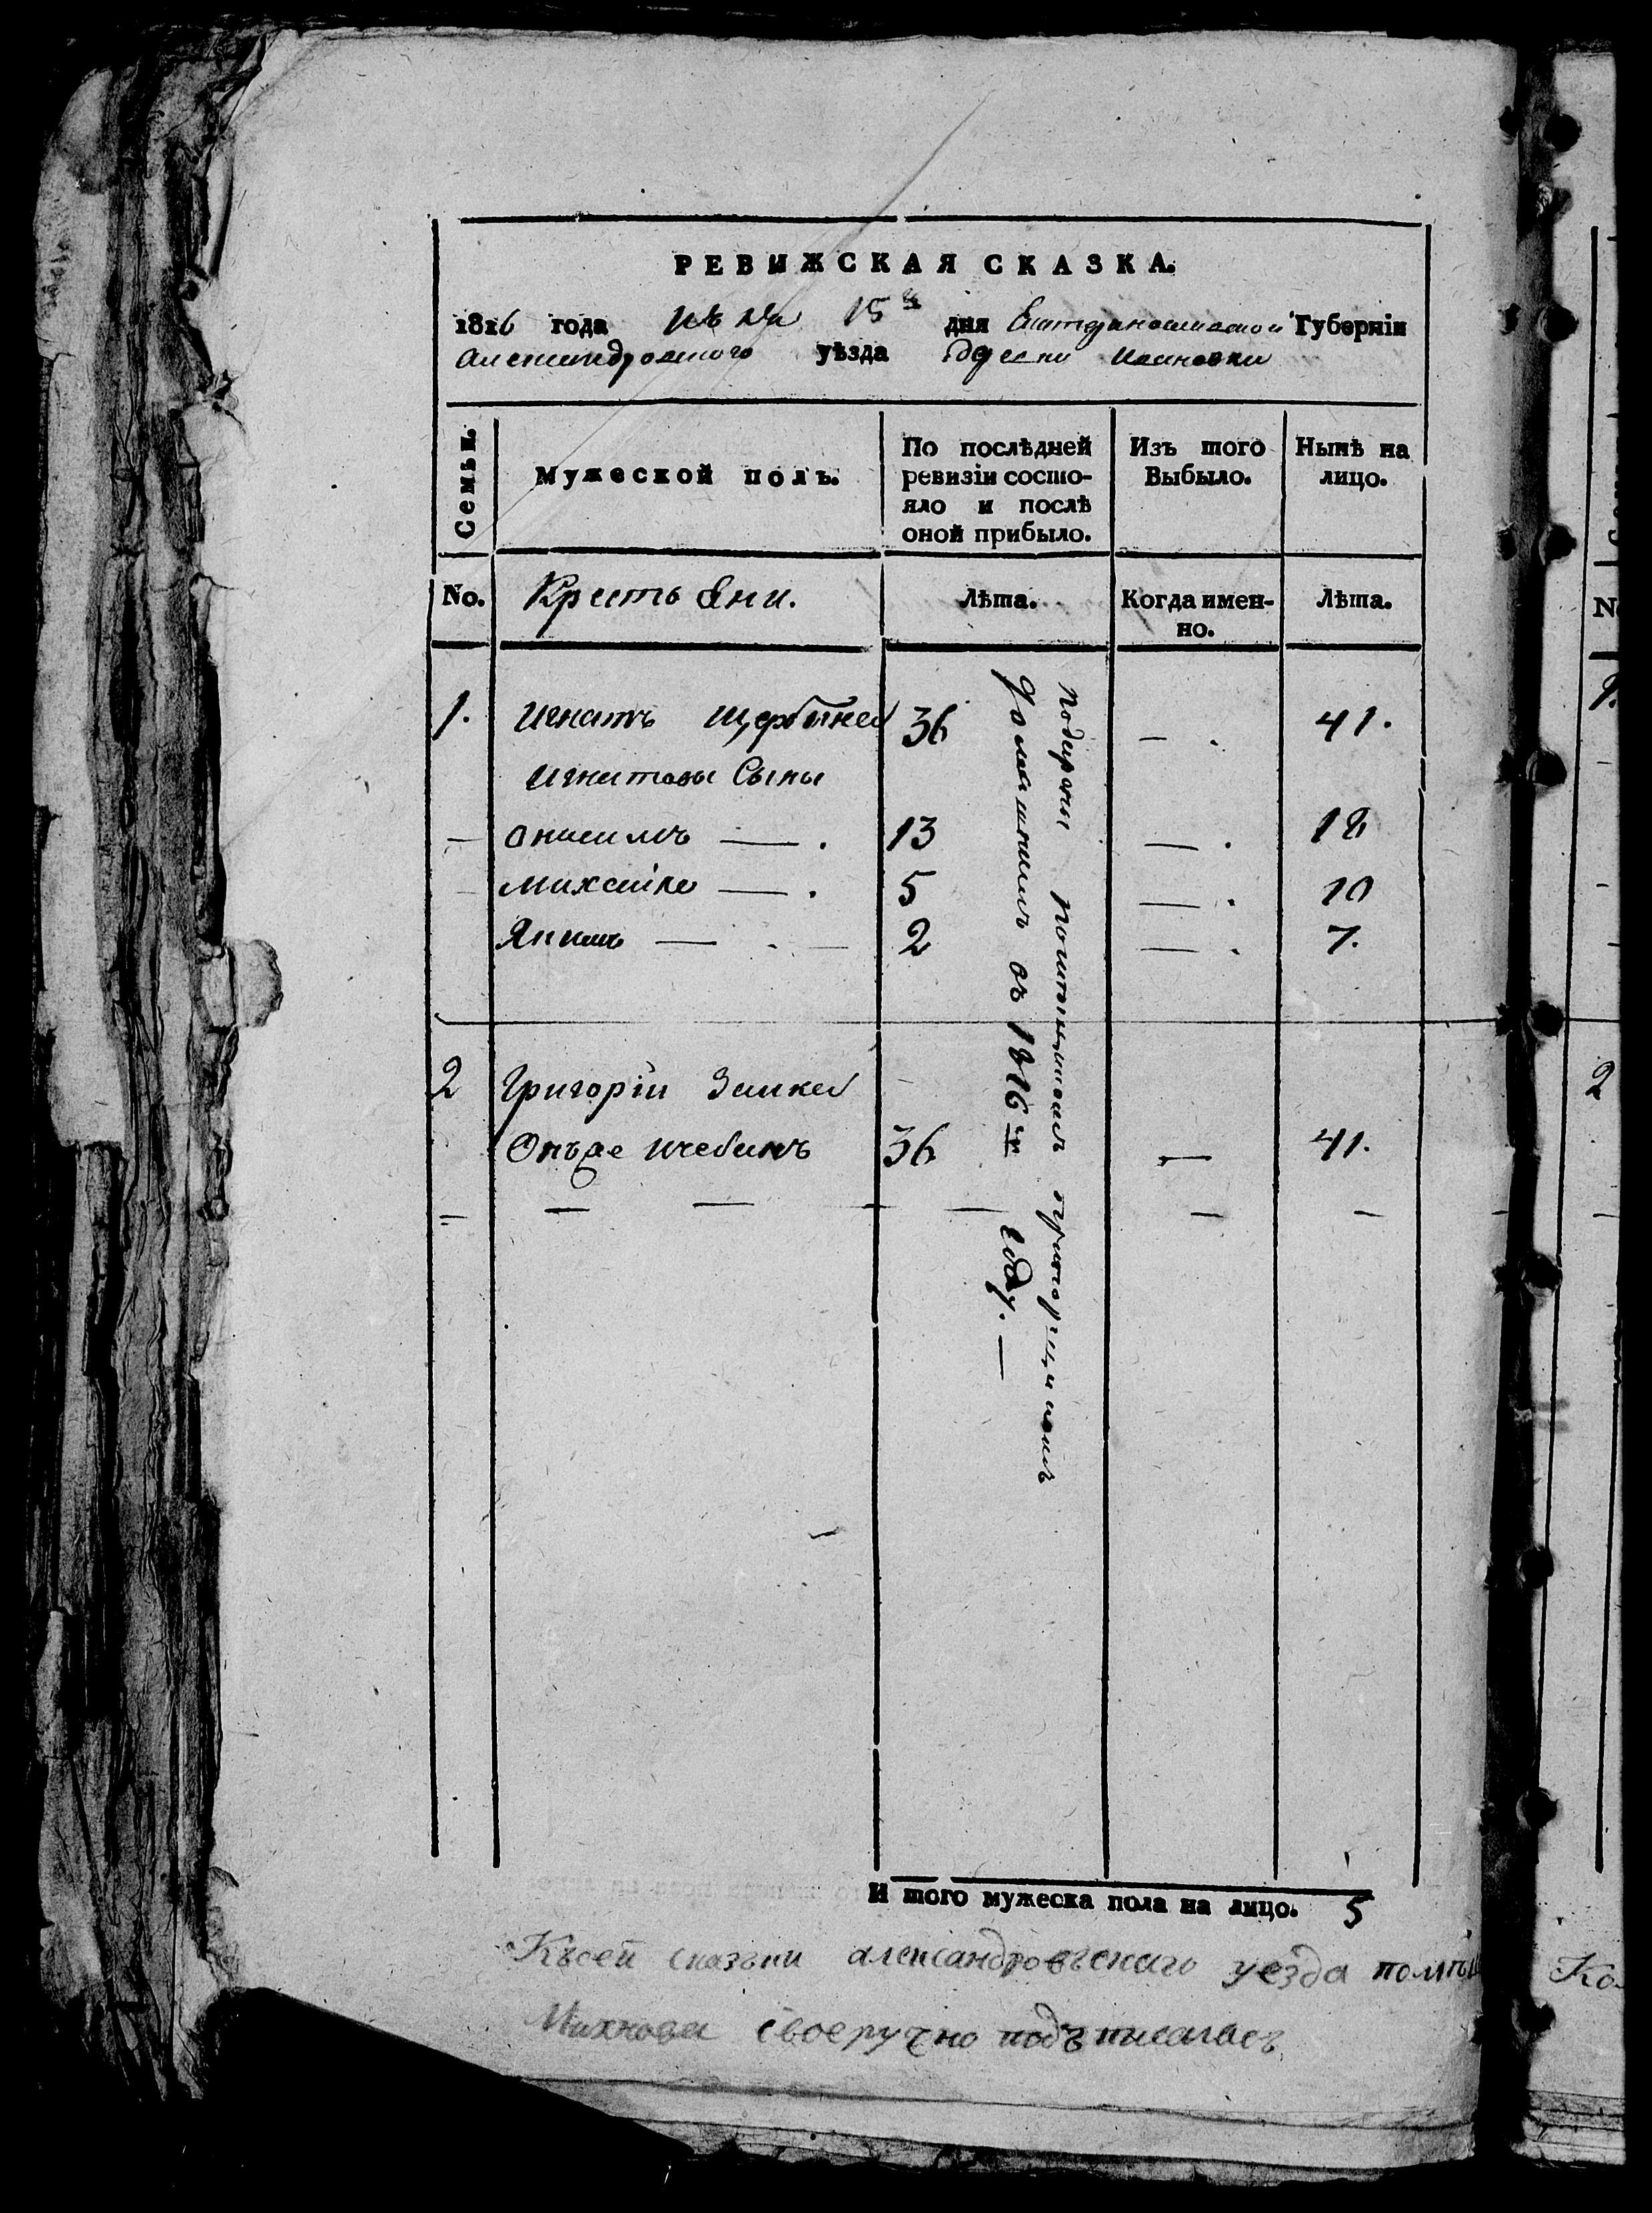 РЕВИЖСКАЯ СКАЗКА.
1816 года 15 дня Екатеринославской Губерніи
Александровского уѣзда Ивановки
Семьи.
Мужеской полъ.
По послѣдней ревизіи состо-
яло и послѣ
оной прибыло.
Изъ того
Выбыло.
Нынѣ на
лицо.
No.
Крестьяни.
Лѣта.
Когда имен-
но.
Лѣта.
1. Игнатъ Щербина 36 — . 41.
Игнатовы Сыны
— Онисимъ — . 13 — . 18
— Михайла — . 5 — . 10
Якимъ — . — 2 — . 7.
2 Григорій Заика
Онъ же 36 — 41.
Подарены Григориемъ
въ 1816 году. —
И того мужеска пола на лицо. 5
Късей сказъки александровъскаго уезда
Махнова своеручно подъписалась